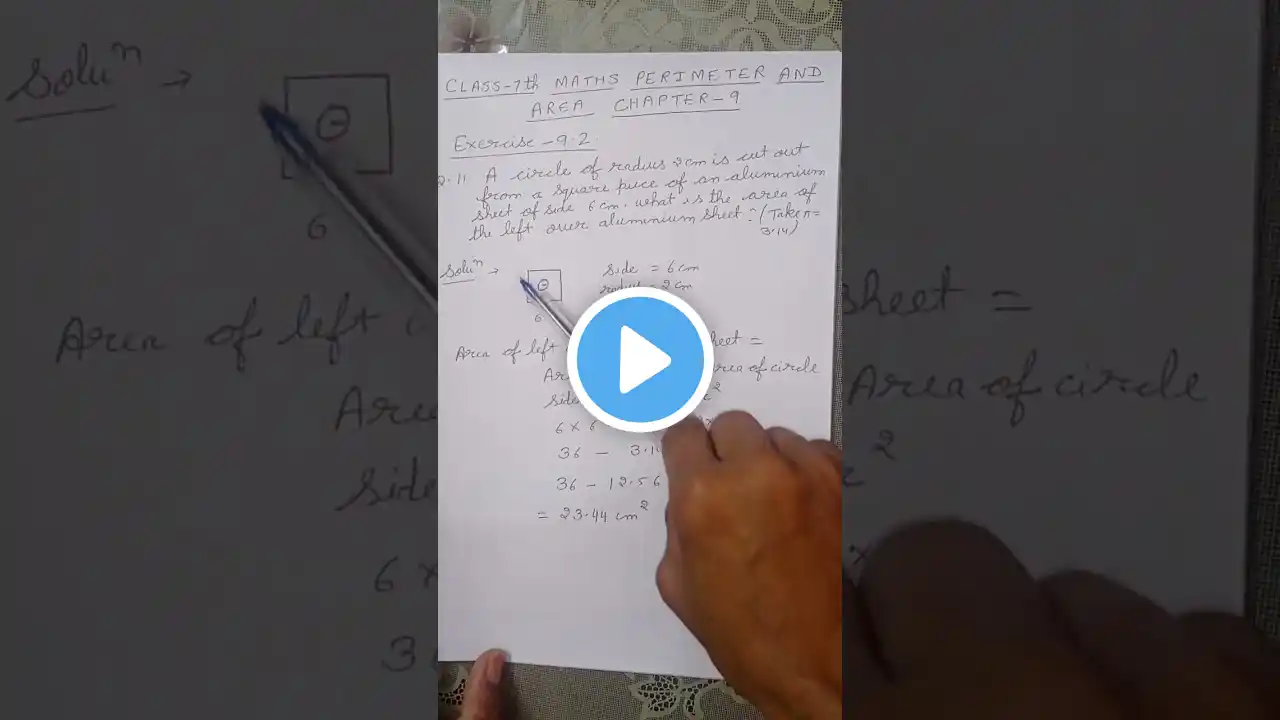 CLASS-7th MATHS PERIMETER AND
AREA CHAPTER-9
Exercise-9.2
11 A circle of radius 2cm is cut out
from a square piece of an aluminium
sheet of side 6 cm. what is the area of
the left over aluminium sheet? (Take π=
3.14)
Soluⁿ →
side = 6cm
radius = 2 cm
6
Area of left sheet =
Area of circle
side
6 × 6
36 - 3.14
36 - 12.56
= 23.44 cm²